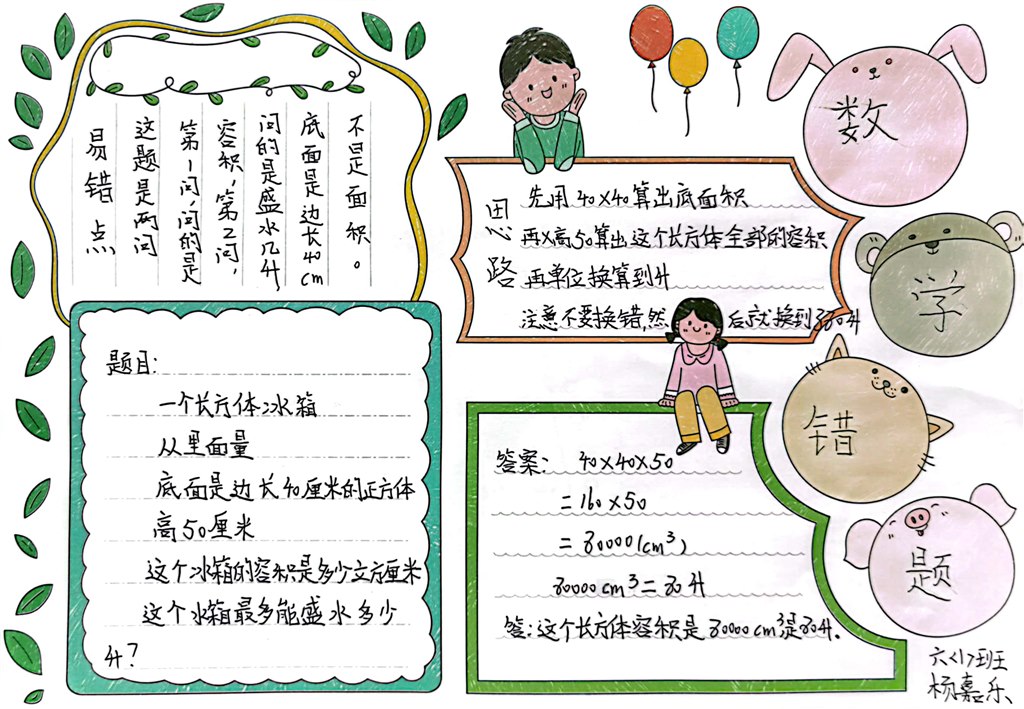 数
学
错
题
易错点
这题是两问
第1问,问的是
容积,第2问,
问的是盛水几升
底面是边长40cm
不是面积。
思路
先用40×40算出底面积
再×高50算出这个长方体全部的容积
再单位换算到升
注意不要换错,然后就换到80升
题目:
一个长方体冰箱
从里面量
底面是边长40厘米的正方体
高50厘米
这个冰箱的容积是多少立方厘米
这个冰箱最多能盛水多少
升?
答案: 40×40×50
=160×50
=80000(cm³)
80000cm³=80升
答:这个长方体容积是80000cm³是80升.
六<1>班
杨嘉乐